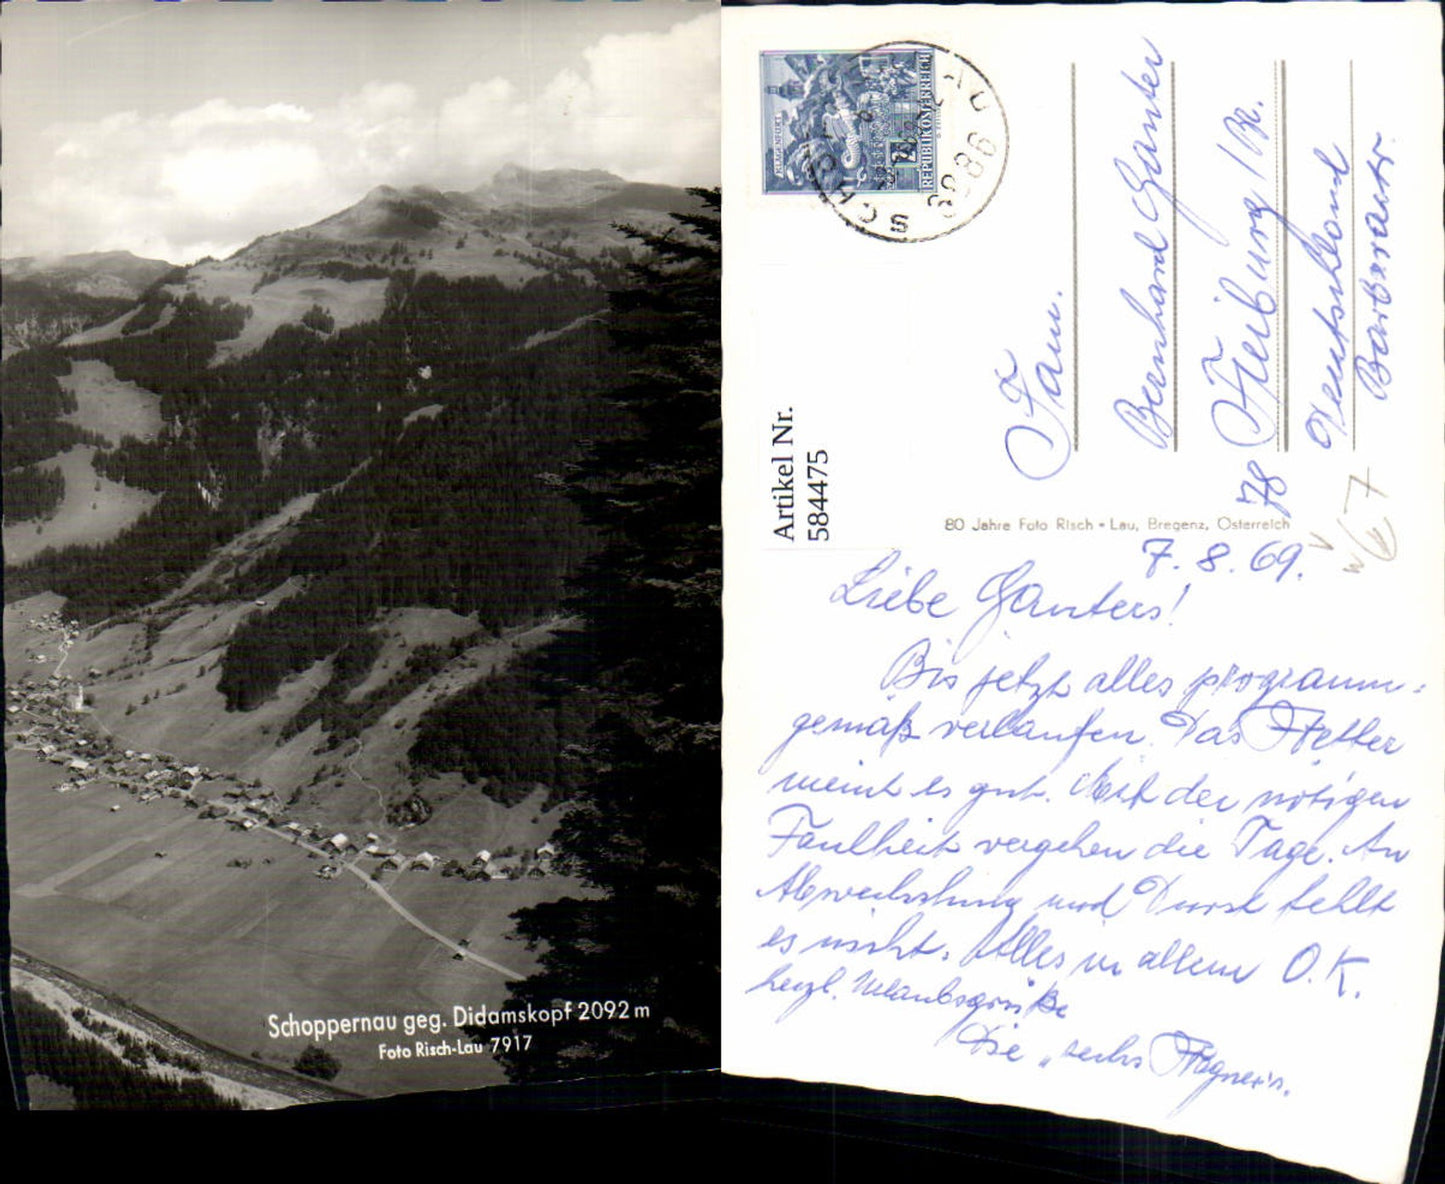 Schoppernau geg. Didamskopf 2092 m
Foto Risch-Lau 7917
KLAGENFURT
REPUBLIK ÖSTERREICH
6886 SCH
Artikel Nr.
584475
Fam.
Bernhard Ganter
78 Freiburg / Br.
Deutschland
Barbarastr. 7
80 Jahre Foto Risch-Lau, Bregenz, Österreich
7. 8. 69.
Liebe Ganters!
Bis jetzt alles programm-
gemäß verlaufen. Das Wetter
meint es gut. Mit der nötigen
Faulheit vergehen die Tage. An
Abwechslung und Durst fehlt
es nicht. Alles in allem O.K.
herzl. Urlaubsgrüße
Die "sechs Wagner's.